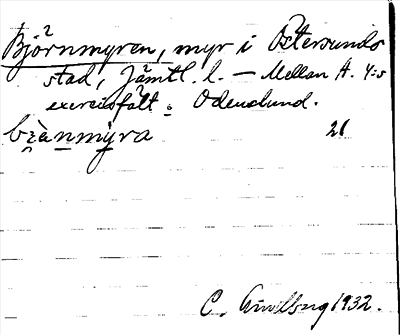 Björnmyren, myr i Östersunds
stad, Jämtl. l. – Mellan A. 4:s
exercisfält o. Odenslund.
bɛ̀ànmy̱ra 26
C. 1932.